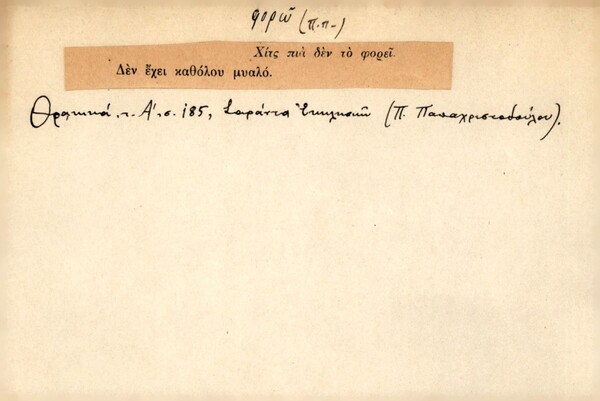 φορῶ (π.π.)
Χὶτς πιὰ δὲν τὸ φορεῖ.
Δὲν ἔχει καθόλου μυαλό.
Θρακικά, τ. Α', σ. 185, Σαράντα Ἐκκλησιῶν (Π. Παπαχριστοδούλου).